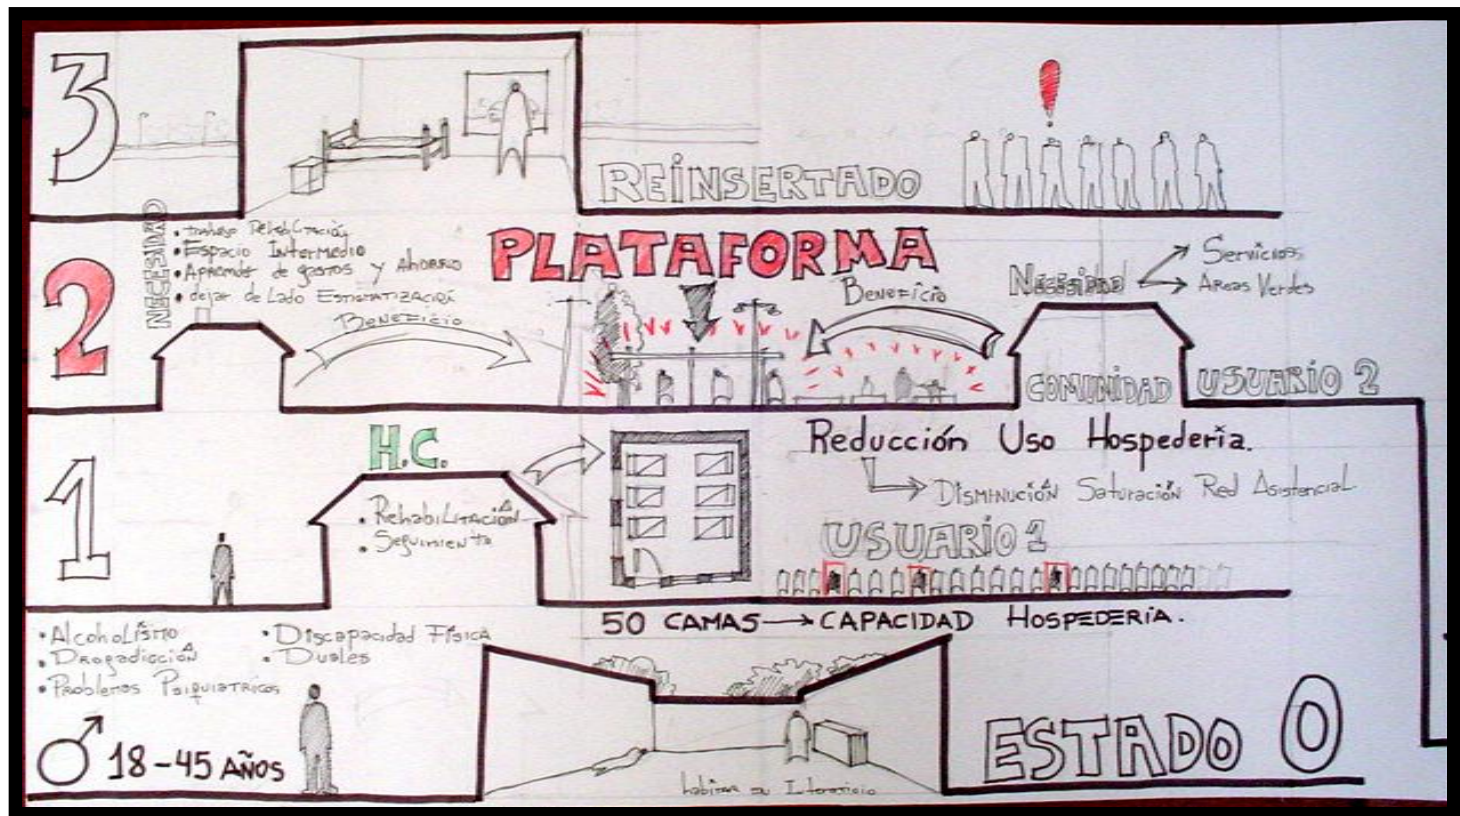 3
REINSERTADO
2
NECESIDAD
• trabajo Rehabilitación
• Espacio Intermedio
• Aprender de gastos y Ahorro
• dejar de Lado Estigmatización
BENEFICIO
PLATAFORMA
BENEFICIO
NECESIDAD
Servicios
Areas Verdes
COMUNIDAD
USUARIO 2
1
H.C.
• Rehabilitación
• Seguimiento
Reducción Uso Hospederia.
Disminución Saturación Red Asistencial
USUARIO 1
50 CAMAS → CAPACIDAD HOSPEDERIA.
• Alcoholismo
• Drogadicción
• Problemas Psiquiatricos
• Discapacidad Física
• Duales
♂ 18-45 AÑOS
habitar su Intersticio
ESTADO 0